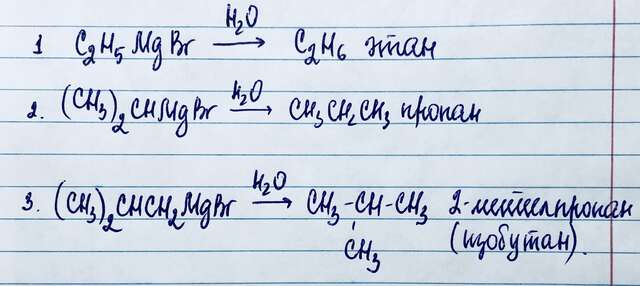 1 C₂H₅MgBr H₂O → C₂H₆ этан
2. (CH₃)₂CHMgBr H₂O → CH₃CH₂CH₃ пропан
3. (CH₃)₂CHCH₂MgBr H₂O → CH₃-CH-CH₃ 2-метилпропан
CH₃ (изобутан).